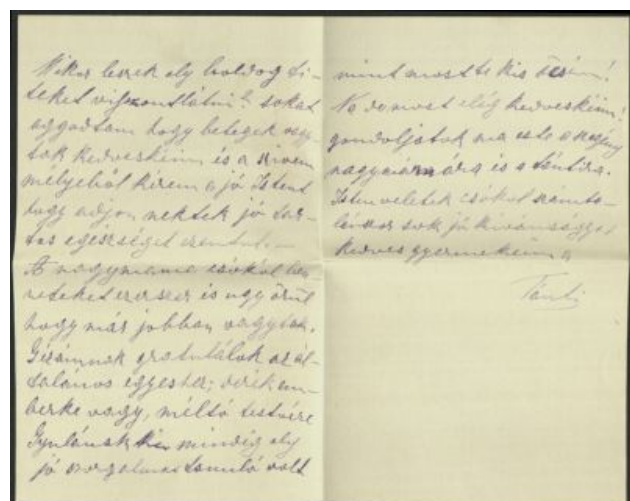 Mikor leszek oly boldog ti-
teket viszontlátni? sokat
aggodtam hogy betegek vagy-
tok kedveskéim és a szivem
mélyéből kérem a jó Istent
hogy adjon nektek jó tar-
tos egészséget ezentul. –
A nagymama csókol ben-
neteket ezerszer is ugy örül
hogy már jobban vagytok.
Gézámnak gratulálok az ál-
talános egyeshez; derék em-
berke vagy, méltó testvére
Gyulának ki mindig oly
jó szorgalmas tanuló volt
mint most te kis öcsém!
No de most elég kedveskéim!
gondoljatok ma este a szegény
nagymamára és a tántira.
Isten veletek csókol számta-
lanszor sok jó kivánsággal
kedves gyermekeim a
Tánti